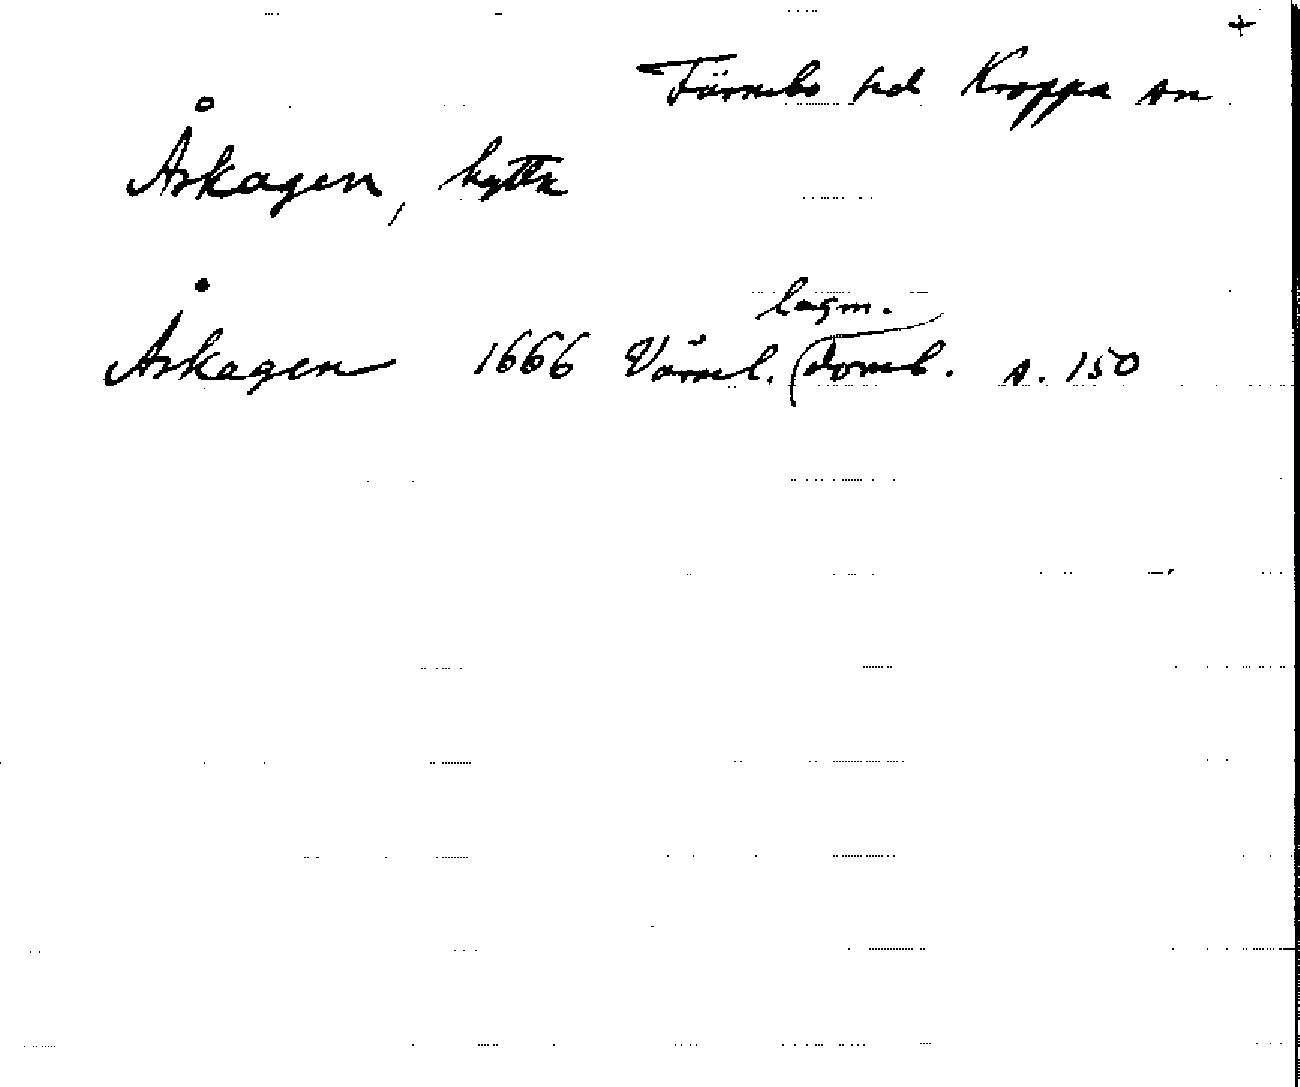 +
Färnebo hd Kroppa sn
Åskagen, hytta
Åskagen 1666 Värml. lagm. Domb. s. 150